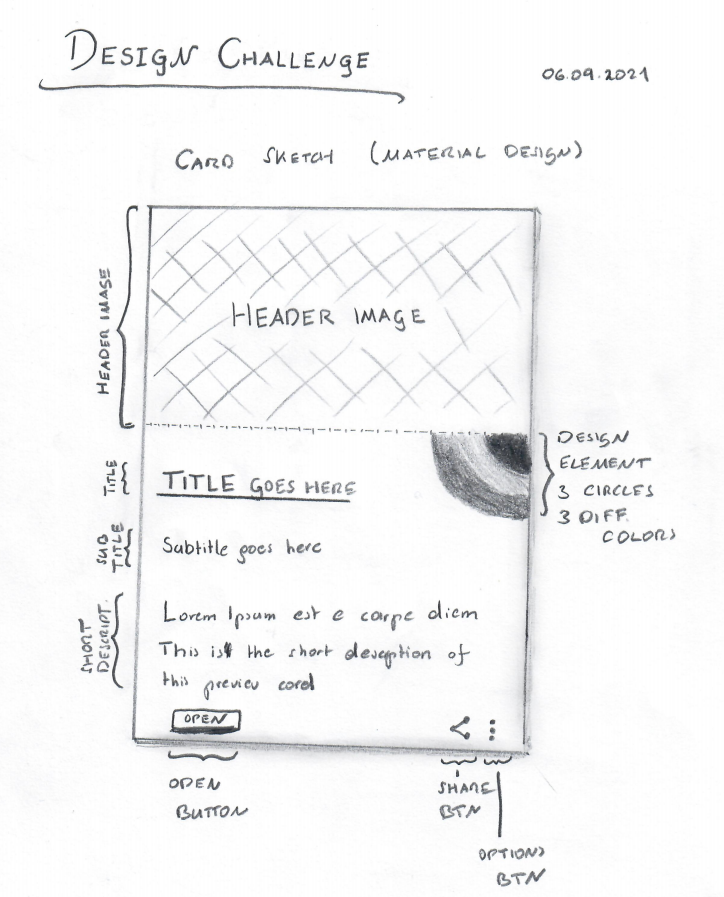 DESIGN CHALLENGE
06.09.2021
CARD SKETCH (MATERIAL DESIGN)
HEADER IMAGE
HEADER IMAGE
DESIGN
ELEMENT
3 CIRCLES
3 DIFF.
COLORS
TITLE
TITLE GOES HERE
SUB
TITLE
Subtitle goes here
SHORT
DESCRIPT.
Lorem Ipsum est e carpe diem
This is the short desception of
this preview card
OPEN
OPEN
BUTTON
SHARE
BTN
OPTIONS
BTN